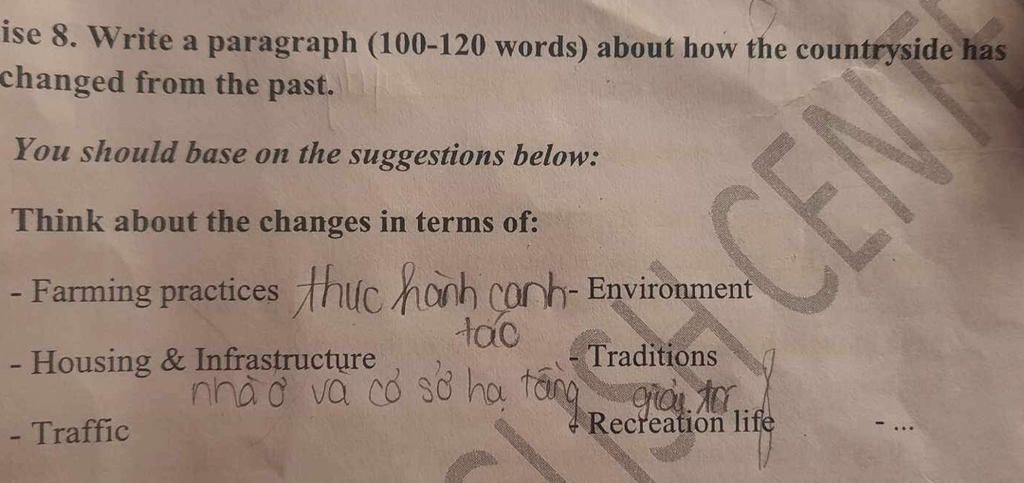 ise 8. Write a paragraph (100-120 words) about how the countryside has
changed from the past.
You should base on the suggestions below:
Think about the changes in terms of:
- Farming practices thực hành canh - Environment
tác
- Housing & Infrastructure - Traditions
nhà ở và cơ sở hạ tầng giải trí
- Traffic - Recreation life - ...
ISH CENTE